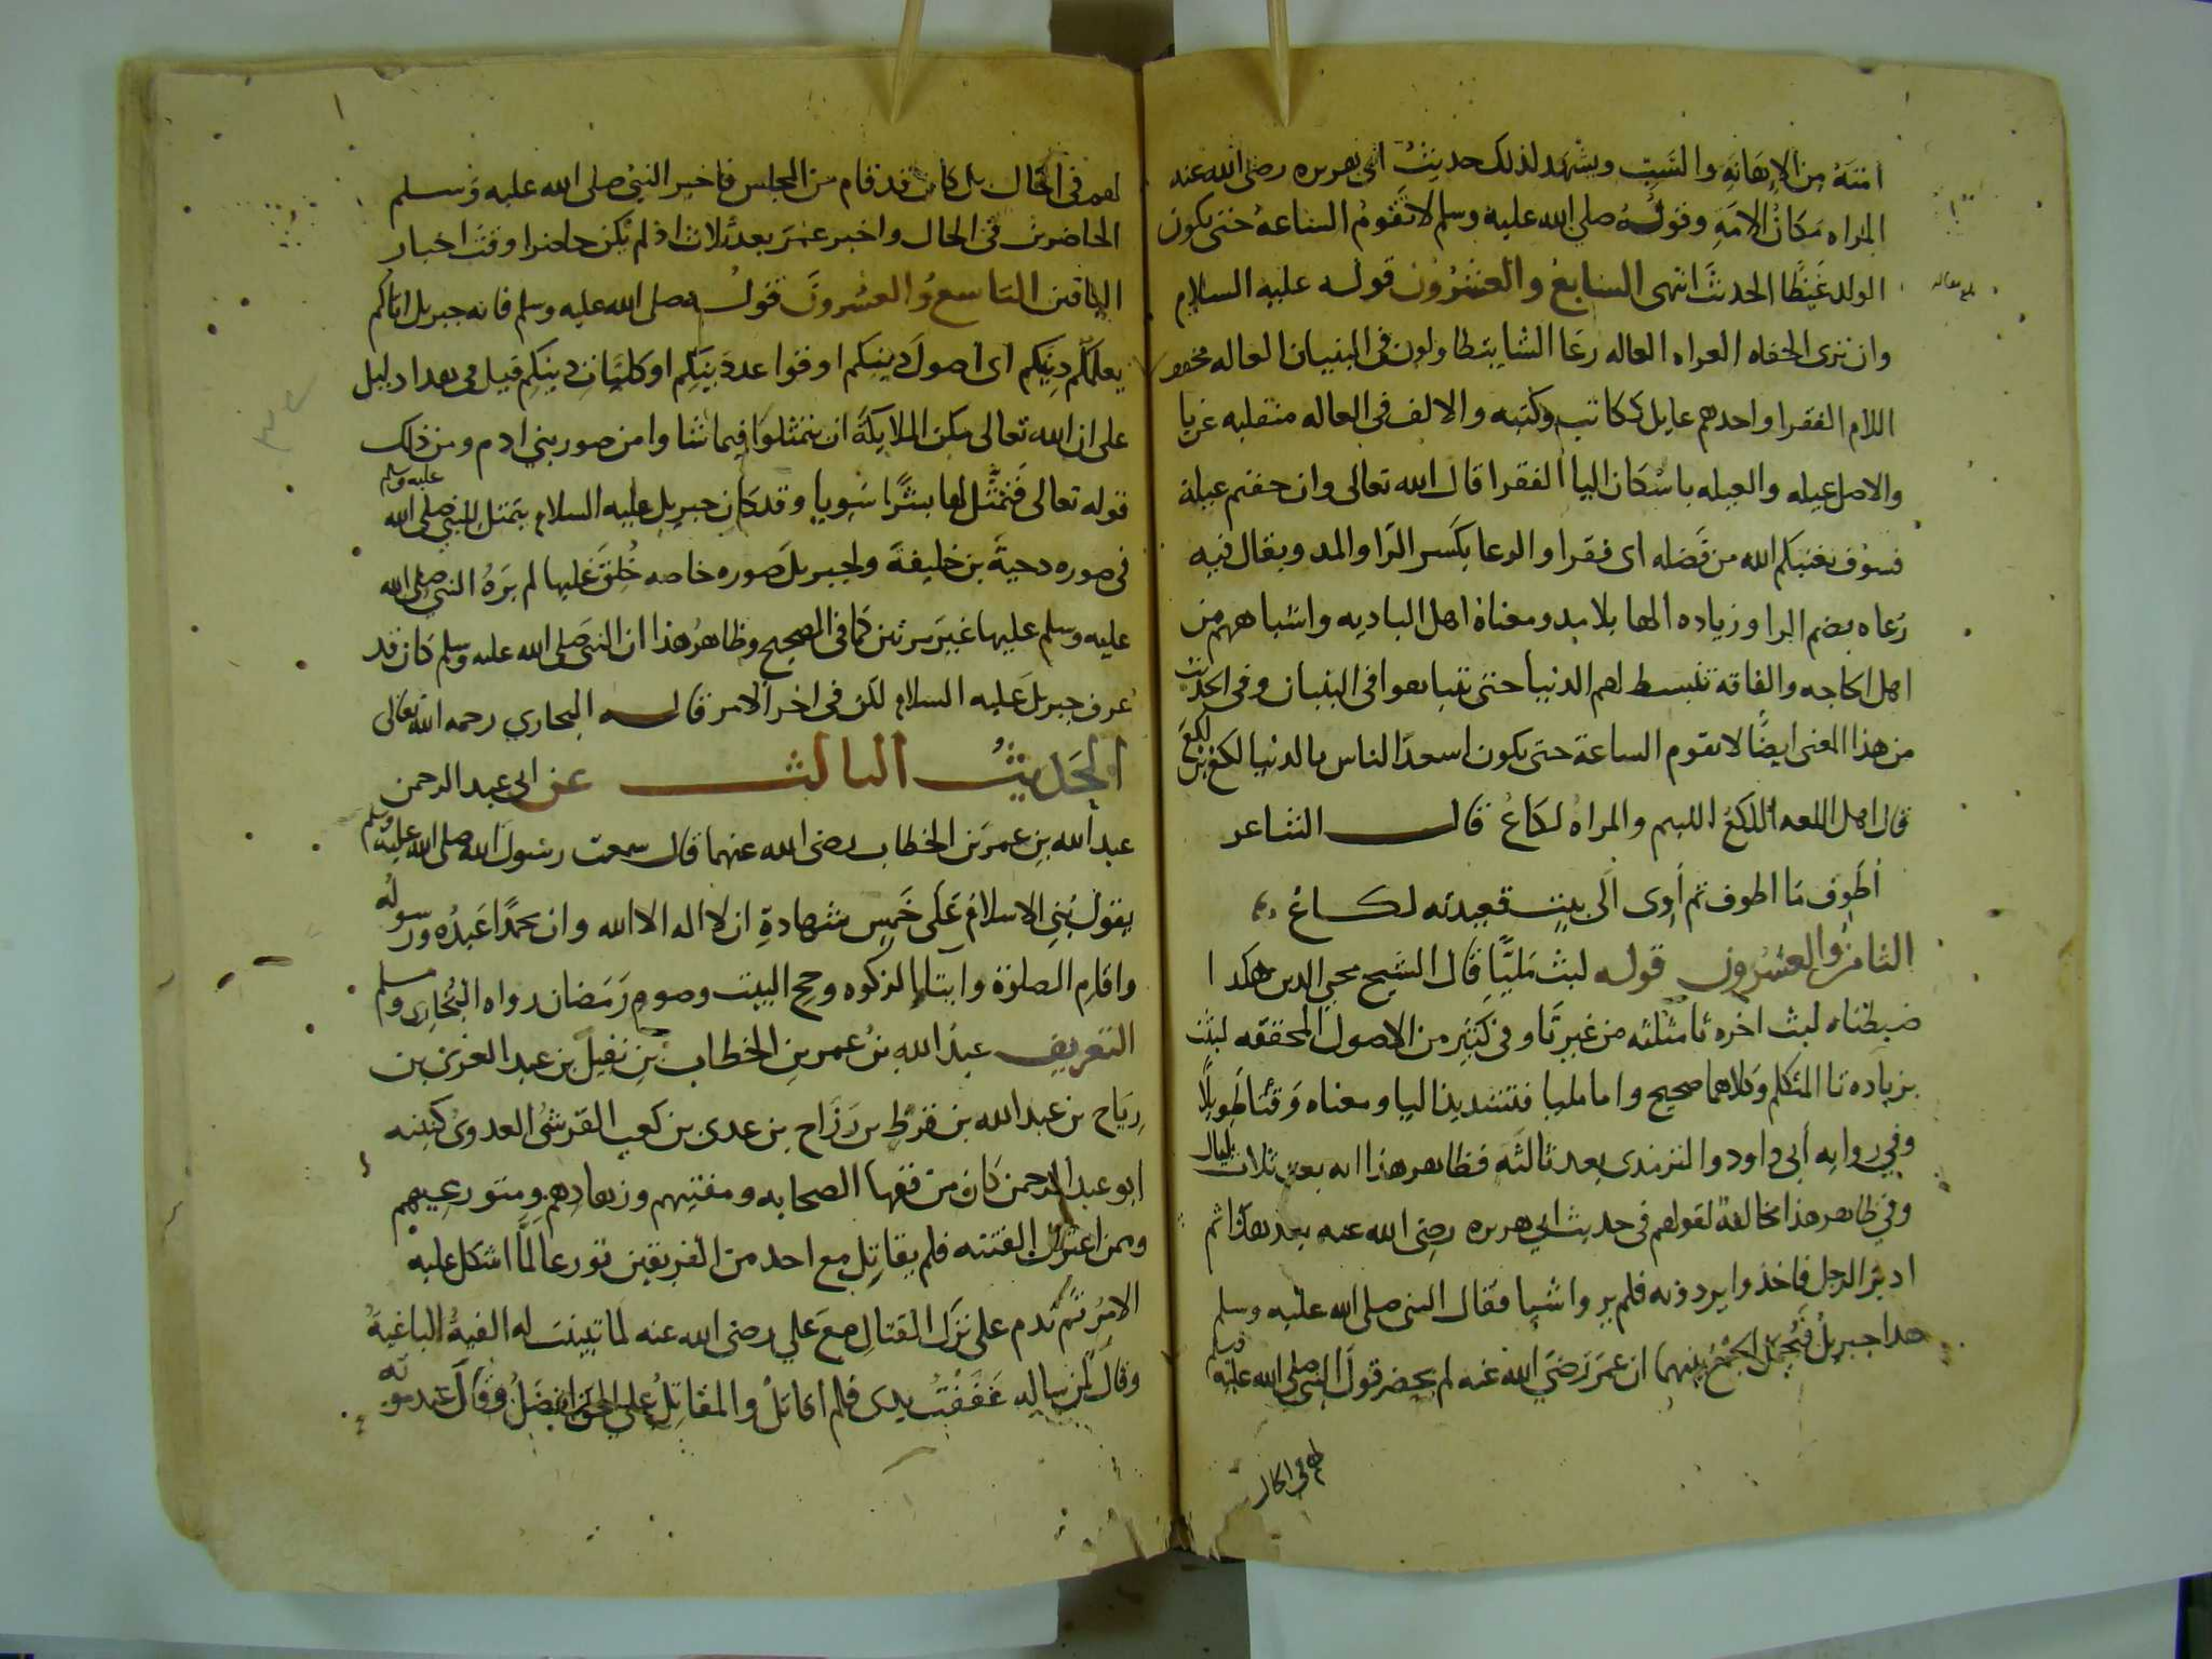 امته من الاهانه والسب ويشهد لذلك حديث ابي هريره رضي الله عنه
المراه مكان الامه وقوله صلى الله عليه وسلم لا تقوم الساعه حتى يكون
الولد غيظا الحديث انتهى السابع والعشرون قوله عليه السلام
وان ترى الحفاه العراه العاله رعا الشا يتطاولون في البنيان العاله مخفف
اللام الفقرا واحدهم عايل ككاتب وكتبه والالف في العاله منقلبه عن يا
والاصل عيله والعيله باسكان اليا الفقر قال الله تعالى وان خفتم عيلة
فسوف يغنيكم الله من فضله اى فقرا والرعا بكسر الرا والمد ويقال فيه
رعاه بضم الرا وزياده الها بلا مد ومعناه اهل الباديه واشباههم من
اهل الحاجه والفاقه تنبسط لهم الدنيا حتى يتباهوا في البنيان وفي الحديث
من هذا المعنى ايضا لا تقوم الساعة حتى يكون اسعد الناس بالدنيا لكع بن لكع
قال اهل اللغه اللكع اللئيم والمراه لكاع قال الشاعر
اطوف ما اطوف ثم آوى الى بيت قعيدته لكاع
الثامن والعشرون قوله لبث مليا قال الشيخ محي الدين هكذا
ضبطناه لبث اخره ثا مثلثه من غير تا وفي كثير من الاصول المحققه لبثت
بزياده تا المتكلم وكلاهما صحيح واما مليا فتشديد اليا ومعناه وقتا طويلا
وفي روايه أبي داود والترمذى بعد ثالثه فظاهر هذا انه بعد ثلاث ليال
وفي ظاهر هذا مخالفة لقولهم في حديث ابي هريره رضي الله عنه بعد هذا ثم
ادبر الرجل فاخذوا يردونه فلم يروا شيا فقال النبي صلى الله عليه وسلم
هذا جبريل فيحمل الجمع بينهما ان عمر رضي الله عنه لم يحضر قول النبي صلى الله عليه وسلم
لهم في الحال
لهم في الحال بل كان قد قام من المجلس فاخبر النبي صلى الله عليه وسلم
الحاضرين في الحال واخبر عمر بعد ثلاث اذ لم يكن حاضرا وقت اخبار
الباقين التاسع والعشرون قوله صلى الله عليه وسلم فانه جبريل اتاكم
يعلمكم دينكم اى اصول دينكم او قواعد دينكم او كليات دينكم قيل في هذا دليل
على ان الله تعالى مكن الملايكة ان يتمثلوا فيما شاوا من صور بني ادم ومن ذلك
قوله تعالى فتمثل لها بشرا سويا وقد كان جبريل عليه السلام يتمثل للنبي صلى الله عليه وسلم
في صوره دحية بن خليفة ولجبريل صوره خاصه خلق عليها لم يره النبي صلى الله
عليه وسلم عليها غير مرتين كما في الصحيح وظاهر هذا ان النبي صلى الله عليه وسلم كان قد
عرف جبريل عليه السلام لكن في اخر الامر قاله البخاري رحمه الله تعالى
الحديث الثالث عن ابي عبد الرحمن
عبد الله بن عمر بن الخطاب رضي الله عنهما قال سمعت رسول الله صلى الله عليه وسلم
يقول بني الاسلام على خمس شهادة ان لا اله الا الله وان محمدا عبده ورسوله
واقام الصلوة وايتا الزكوه وحج البيت وصوم رمضان رواه البخاري ومسلم
التعريف عبد الله بن عمر بن الخطاب بن نفيل بن عبد العزى بن
رياح بن عبد الله بن قرط بن رزاح بن عدى بن كعب القرشي العدوى كنيته
ابو عبد الرحمن كان من فقها الصحابه ومفتيهم وزهادهم ومتورعيهم
وممن اعتزل الفتنه فلم يقاتل مع احد من الفريقين تورعا لما اشكل عليه
الامر ثم ندم على ترك القتال مع علي رضي الله عنه لما تبينت له الفية الباغية
وقال لمن ساله عففت يدى فلم اقاتل والمقاتل على الحق افضل وقال عند موته